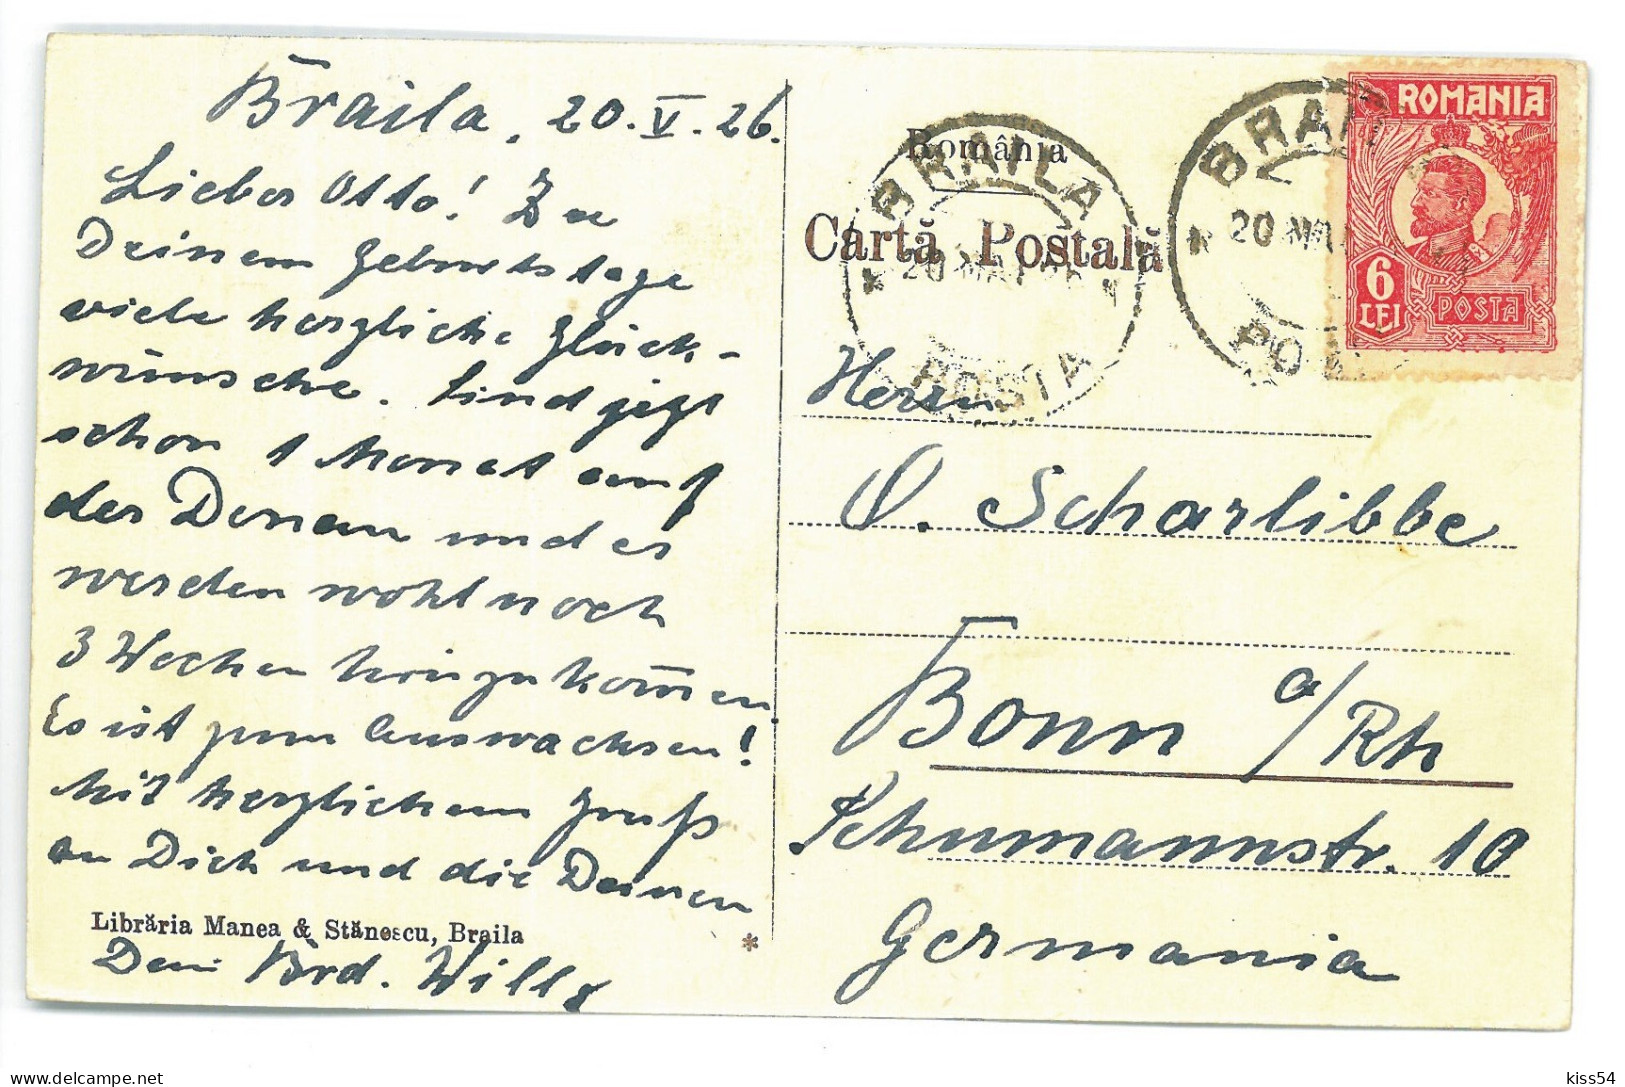 Braila, 20.V.26.
Lieber Otto! Zu
Deinem Geburtstage
viele herzliche Glück-
wünsche. Sind jetzt
schon 1 Monat auf
der Donau und es
werden wohl noch
3 Wochen hinzukom̄en.
Es ist zum Auswachsen!
Mit herzlichem Gruß
an Dich und die Deinen
Librăria Manea & Stănescu, Braila
Dein Brd. Willy
*
România
Cartă Postală
BRAILA
20 MAI 26
POSTA
BRAI
20 MAI
PO
ROMANIA
6
LEI
POSTA
Herrn
O. Scharlibbe
Bonn a/Rh
Schumannstr. 10
Germania
delcampe.net
kiss54